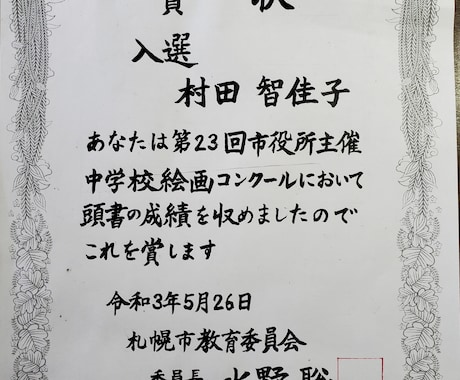 賞状
入選
村田 智佳子
あなたは第23回市役所主催
中学校絵画コンクールにおいて
頭書の成績を収めましたので
これを賞します
令和3年5月26日
札幌市教育委員会
委員長 水野 聡